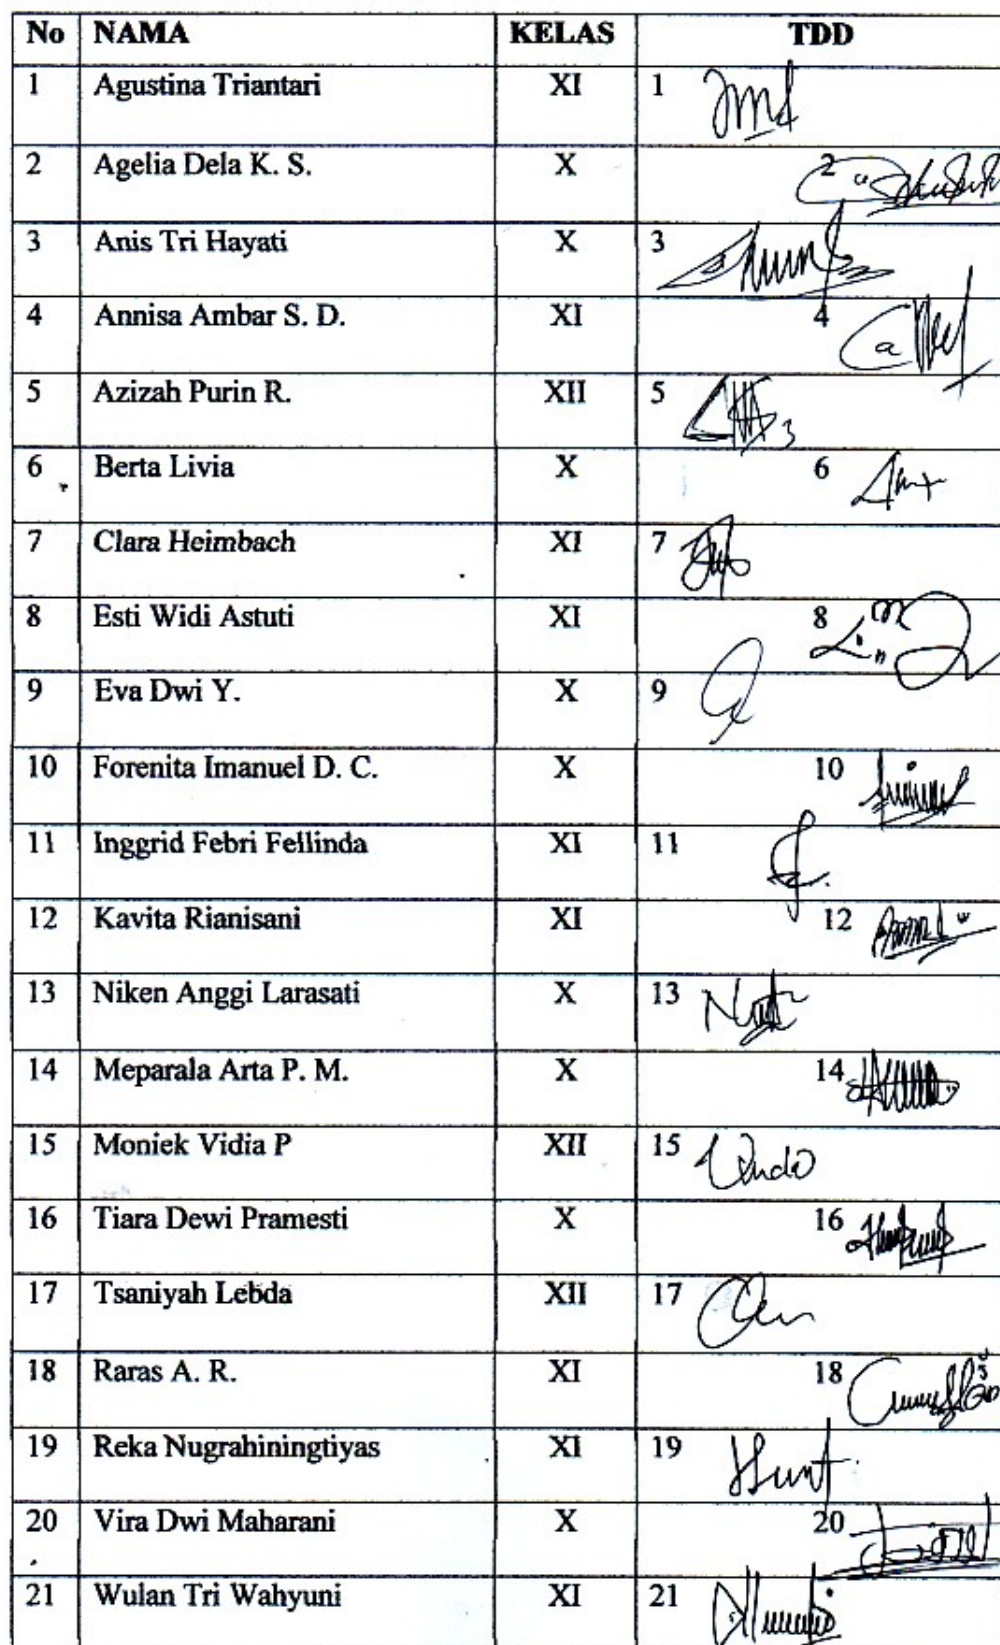 No NAMA KELAS TDD
1 Agustina Triantari XI 1
2 Agelia Dela K. S. X 2
3 Anis Tri Hayati X 3
4 Annisa Ambar S. D. XI 4
5 Azizah Purin R. XII 5
6 Berta Livia X 6
7 Clara Heimbach XI 7
8 Esti Widi Astuti XI 8
9 Eva Dwi Y. X 9
10 Forenita Imanuel D. C. X 10
11 Inggrid Febri Fellinda XI 11
12 Kavita Rianisani XI 12
13 Niken Anggi Larasati X 13
14 Meparala Arta P. M. X 14
15 Moniek Vidia P XII 15
16 Tiara Dewi Pramesti X 16
17 Tsaniyah Lebda XII 17
18 Raras A. R. XI 18
19 Reka Nugrahiningtiyas XI 19
20 Vira Dwi Maharani X 20
21 Wulan Tri Wahyuni XI 21